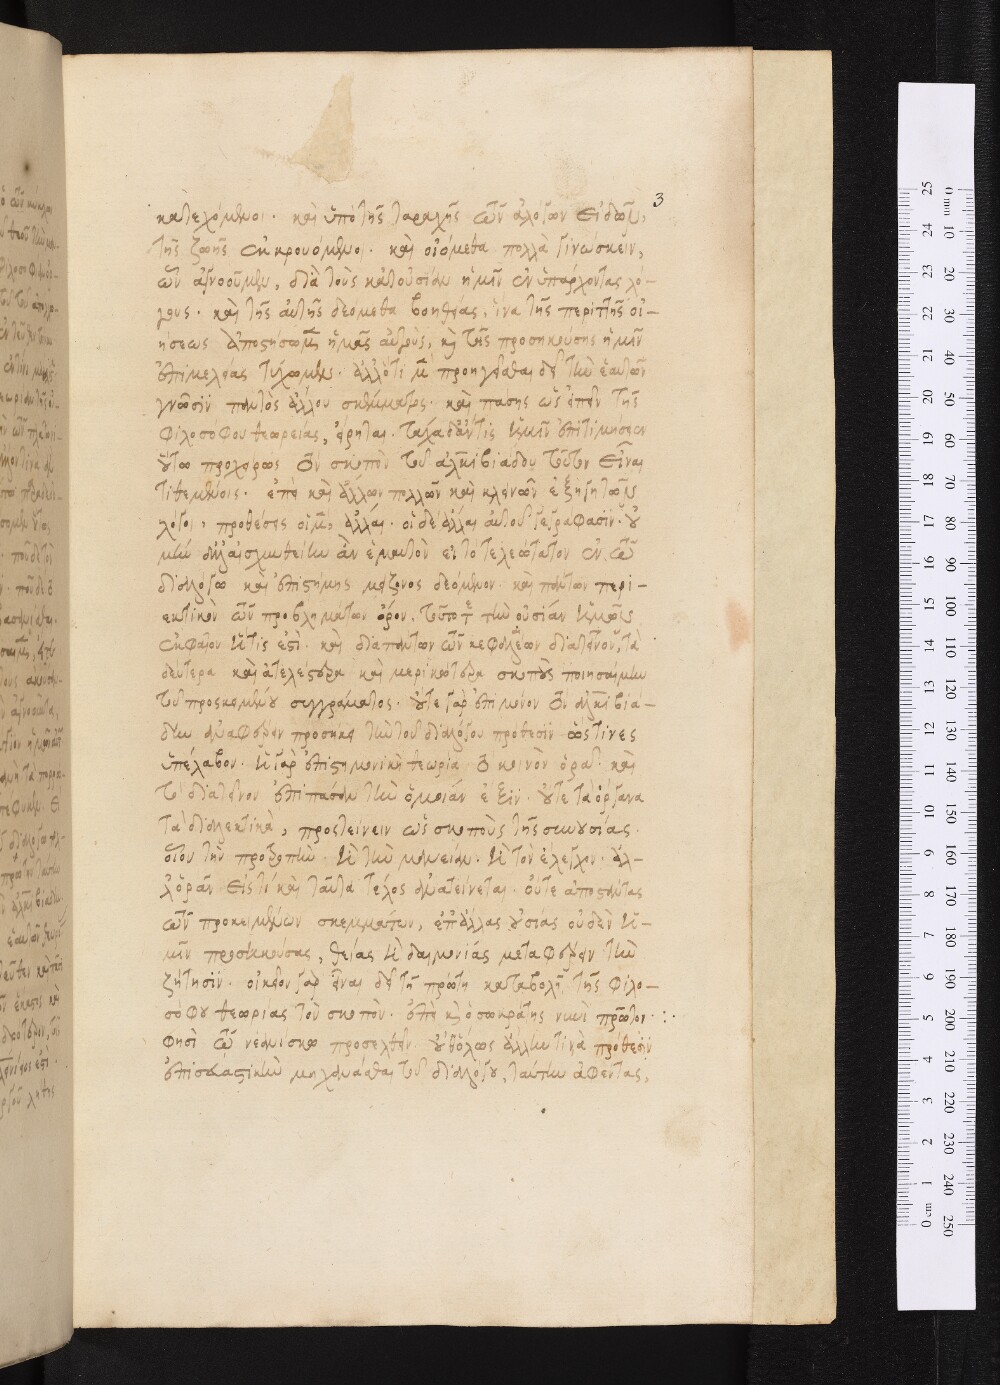 3
κατεχόμενοι· καὶ ὑπὸ τῆς ταραχῆς τῶν ἀλόγων εἰδῶν,
τῆς ζωῆς ἐκκρουόμενοι· καὶ οἰόμεθα πολλὰ γινώσκειν,
ὧν ἀγνοοῦμεν, διὰ τοὺς κατ' οὐσίαν ἡμῖν ἐνυπάρχοντας λό-
γους· καὶ τῆς αὐτῆς δεόμεθα βοηθείας, ἵνα τῆς περιττῆς οἰ-
ήσεως ἀποστήσωμεν ἡμᾶς αὐτοὺς, καὶ τῆς προσηκούσης ἡμῖν
ἐπιμελείας τύχωμεν· ἀλλ' ὅτι μὲν προηγεῖσθαι δεῖ τὴν ἑαυτῶν
γνῶσιν παντὸς ἄλλου σκέμματος· καὶ πάσης ὡς εἰπεῖν τῆς
φιλοσόφου θεωρείας, εἴρηται· τάχα δ' ἄν τις ἡμῖν ἐπιτιμήσειεν
οὕτω προχείρως τὸν σκοπὸν τοῦ ἀλκιβιάδου τοῦτον εἶναι
τιθεμένοις· ἐπεὶ καὶ ἄλλων πολλῶν καὶ κλεινῶν ἐξηγητῶν
λόγοι, προθέσεις οἱ μὲν ἄλλαι· οἱ δὲ ἄλλαι αὐτοῦ γεγράφασιν· οὐ
μὴν δὴ αἰσχυνθείην ἂν ἐμαυτὸν εἰ τὸ τελεώτατον ἐν τῷ
διαλόγῳ καὶ ἐπιστήμης μείζονος δεόμενον· καὶ πάντων περι-
εκτικὸν τῶν προβλημάτων ὁρῶν, τοῦτο τὴν οὐσίαν ἡμῶν
ἐκφαῖνον ἥτις ἐστί· καὶ διὰ πάντων τῶν κεφαλαίων διατεῖνον, τὰ
δεύτερα καὶ ἀτελέστερα καὶ μερικώτερα σκοποὺς ποιησαίμην
τοῦ προκειμένου συγγράμματος· οὔτε γὰρ ἐπὶ μόνον τὸν ἀλκιβιά-
δην ἀναφέρειν προσήκει τὴν τοῦ διαλόγου πρόθεσιν ὥς τινες
ὑπέλαβον· ἡ γὰρ ἐπιστημονικὴ θεωρία τὸ κοινὸν ὁρᾷ· καὶ
τὸ διατεῖνον ἐπὶ πᾶσαν τὴν ὁμοίαν ἕξιν· οὔτε τὰ ὄργανα
τὰ διαλεκτικὰ, προτείνειν ὡς σκοποὺς τῆς συνουσίας·
οἷον τὴν προτροπὴν· ἢ τὴν μαιείαν· ἢ τὸν ἔλεγχον· ἀλ-
λ' ὁρᾶν εἰς τί καὶ ταῦτα τέλος ἀνατείνεται· οὔτε ἀποστάντας
τῶν προκειμένων σκεμμάτων, ἐπ' ἄλλας οὐσίας οὐδὲν ἡ-
μῖν προσηκούσας, θείας ἢ δαιμονίας μεταφέρειν τὴν
ζήτησιν· οἰκεῖον γὰρ εἶναι δεῖ τῇ πρώτῃ καταβολῇ τῆς φιλο-
σόφου θεωρίας τὸν σκοπὸν· ἐπεὶ καὶ ὁ σωκράτης νυνὶ πρῶτον
φησὶ τῷ νεανίσκῳ προσελθεῖν· οὔθ' ὅλως ἄλλην τινὰ πρόθεσιν
ἐπεισοδιαστικὴν μηχανᾶσθαι τοῦ διαλόγου, ταύτην ἀφέντας,